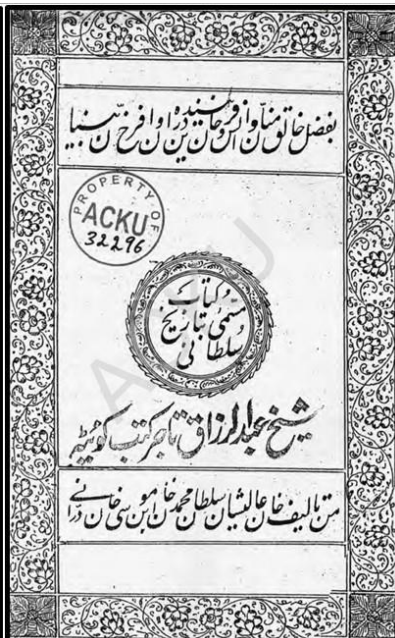 بفضل خالق
PROPERTY OF
ACKU
32296
کتاب
مسمی بتاریخ
سلطانی
شیخ عبدالرزاق تاجر کتب کوئٹہ
من تالیف خان عالیشان سلطان محمد خان ابن موسی خان درانی